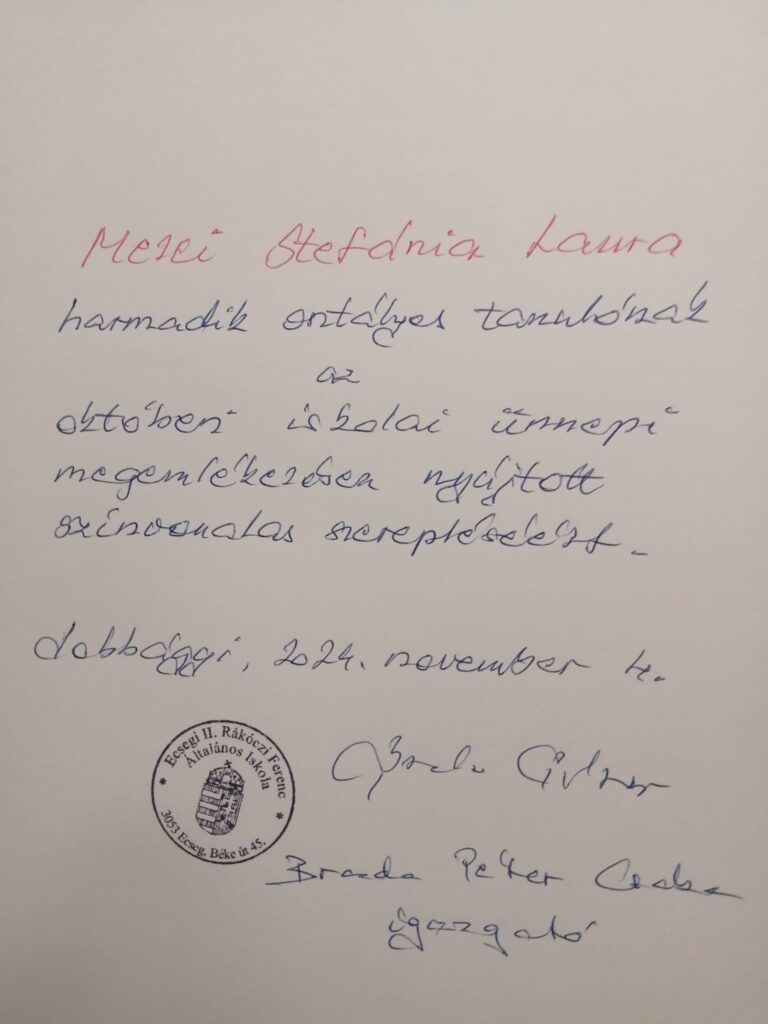 Mezei Stefánia Laura
harmadik osztályos tanulónak
az
októberi iskolai ünnepi
megemlékezésen nyújtott
színvonalas szerepléséért.
2024. november 4.
Ecsegi II. Rákóczi Ferenc
Általános Iskola
3053 Ecseg, Béke út 45.
Brozda Péter Csaba
igazgató